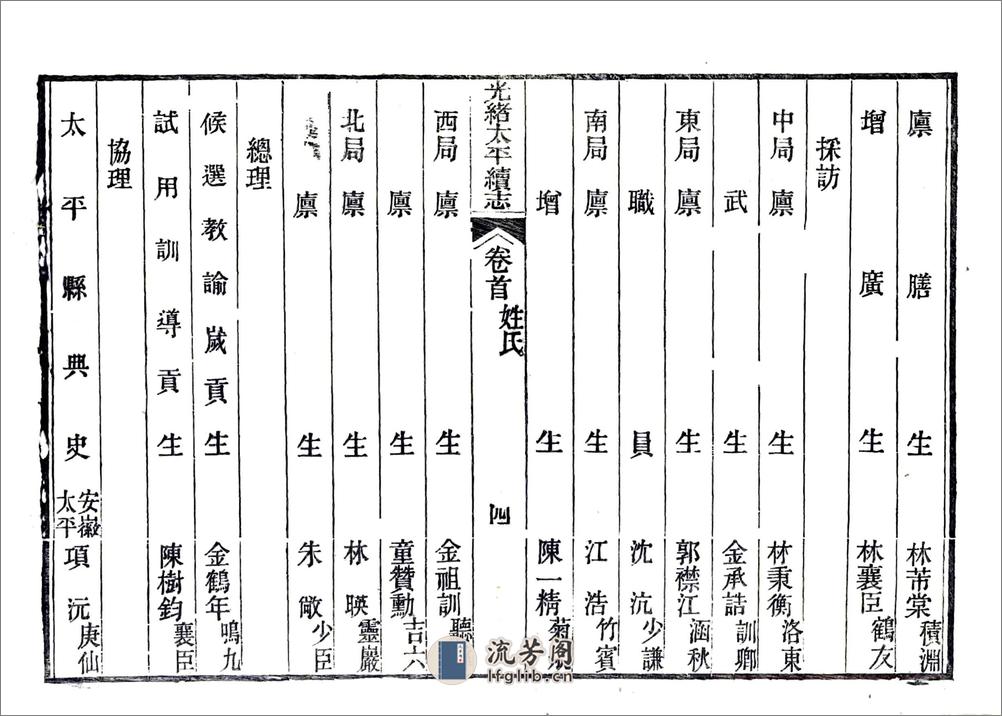 廪膳生 林芾棠 積淵
增廣生 林襄臣 鶴友
採訪
中局廪生 林秉衡 洛東
武生 金承誥 訓卿
東局廪生 郭襟江 涵秋
職員 沈沆 少謙
南局廪生 江浩 竹賓
增生 陳一精 菊
光緒太平續志 卷首 姓氏 四
西局廪生 金祖訓 聽
廪生 童贊勳 吉六
北局廪生 林暎 靈巖
廪生 朱 少臣
總理
候選教諭歲貢生 金鶴年 鳴九
試用訓導貢生 陳樹鈞 襄臣
協理
太平縣典史 安徽太平 項沅 庚仙
流芳阁
lfglib.cn